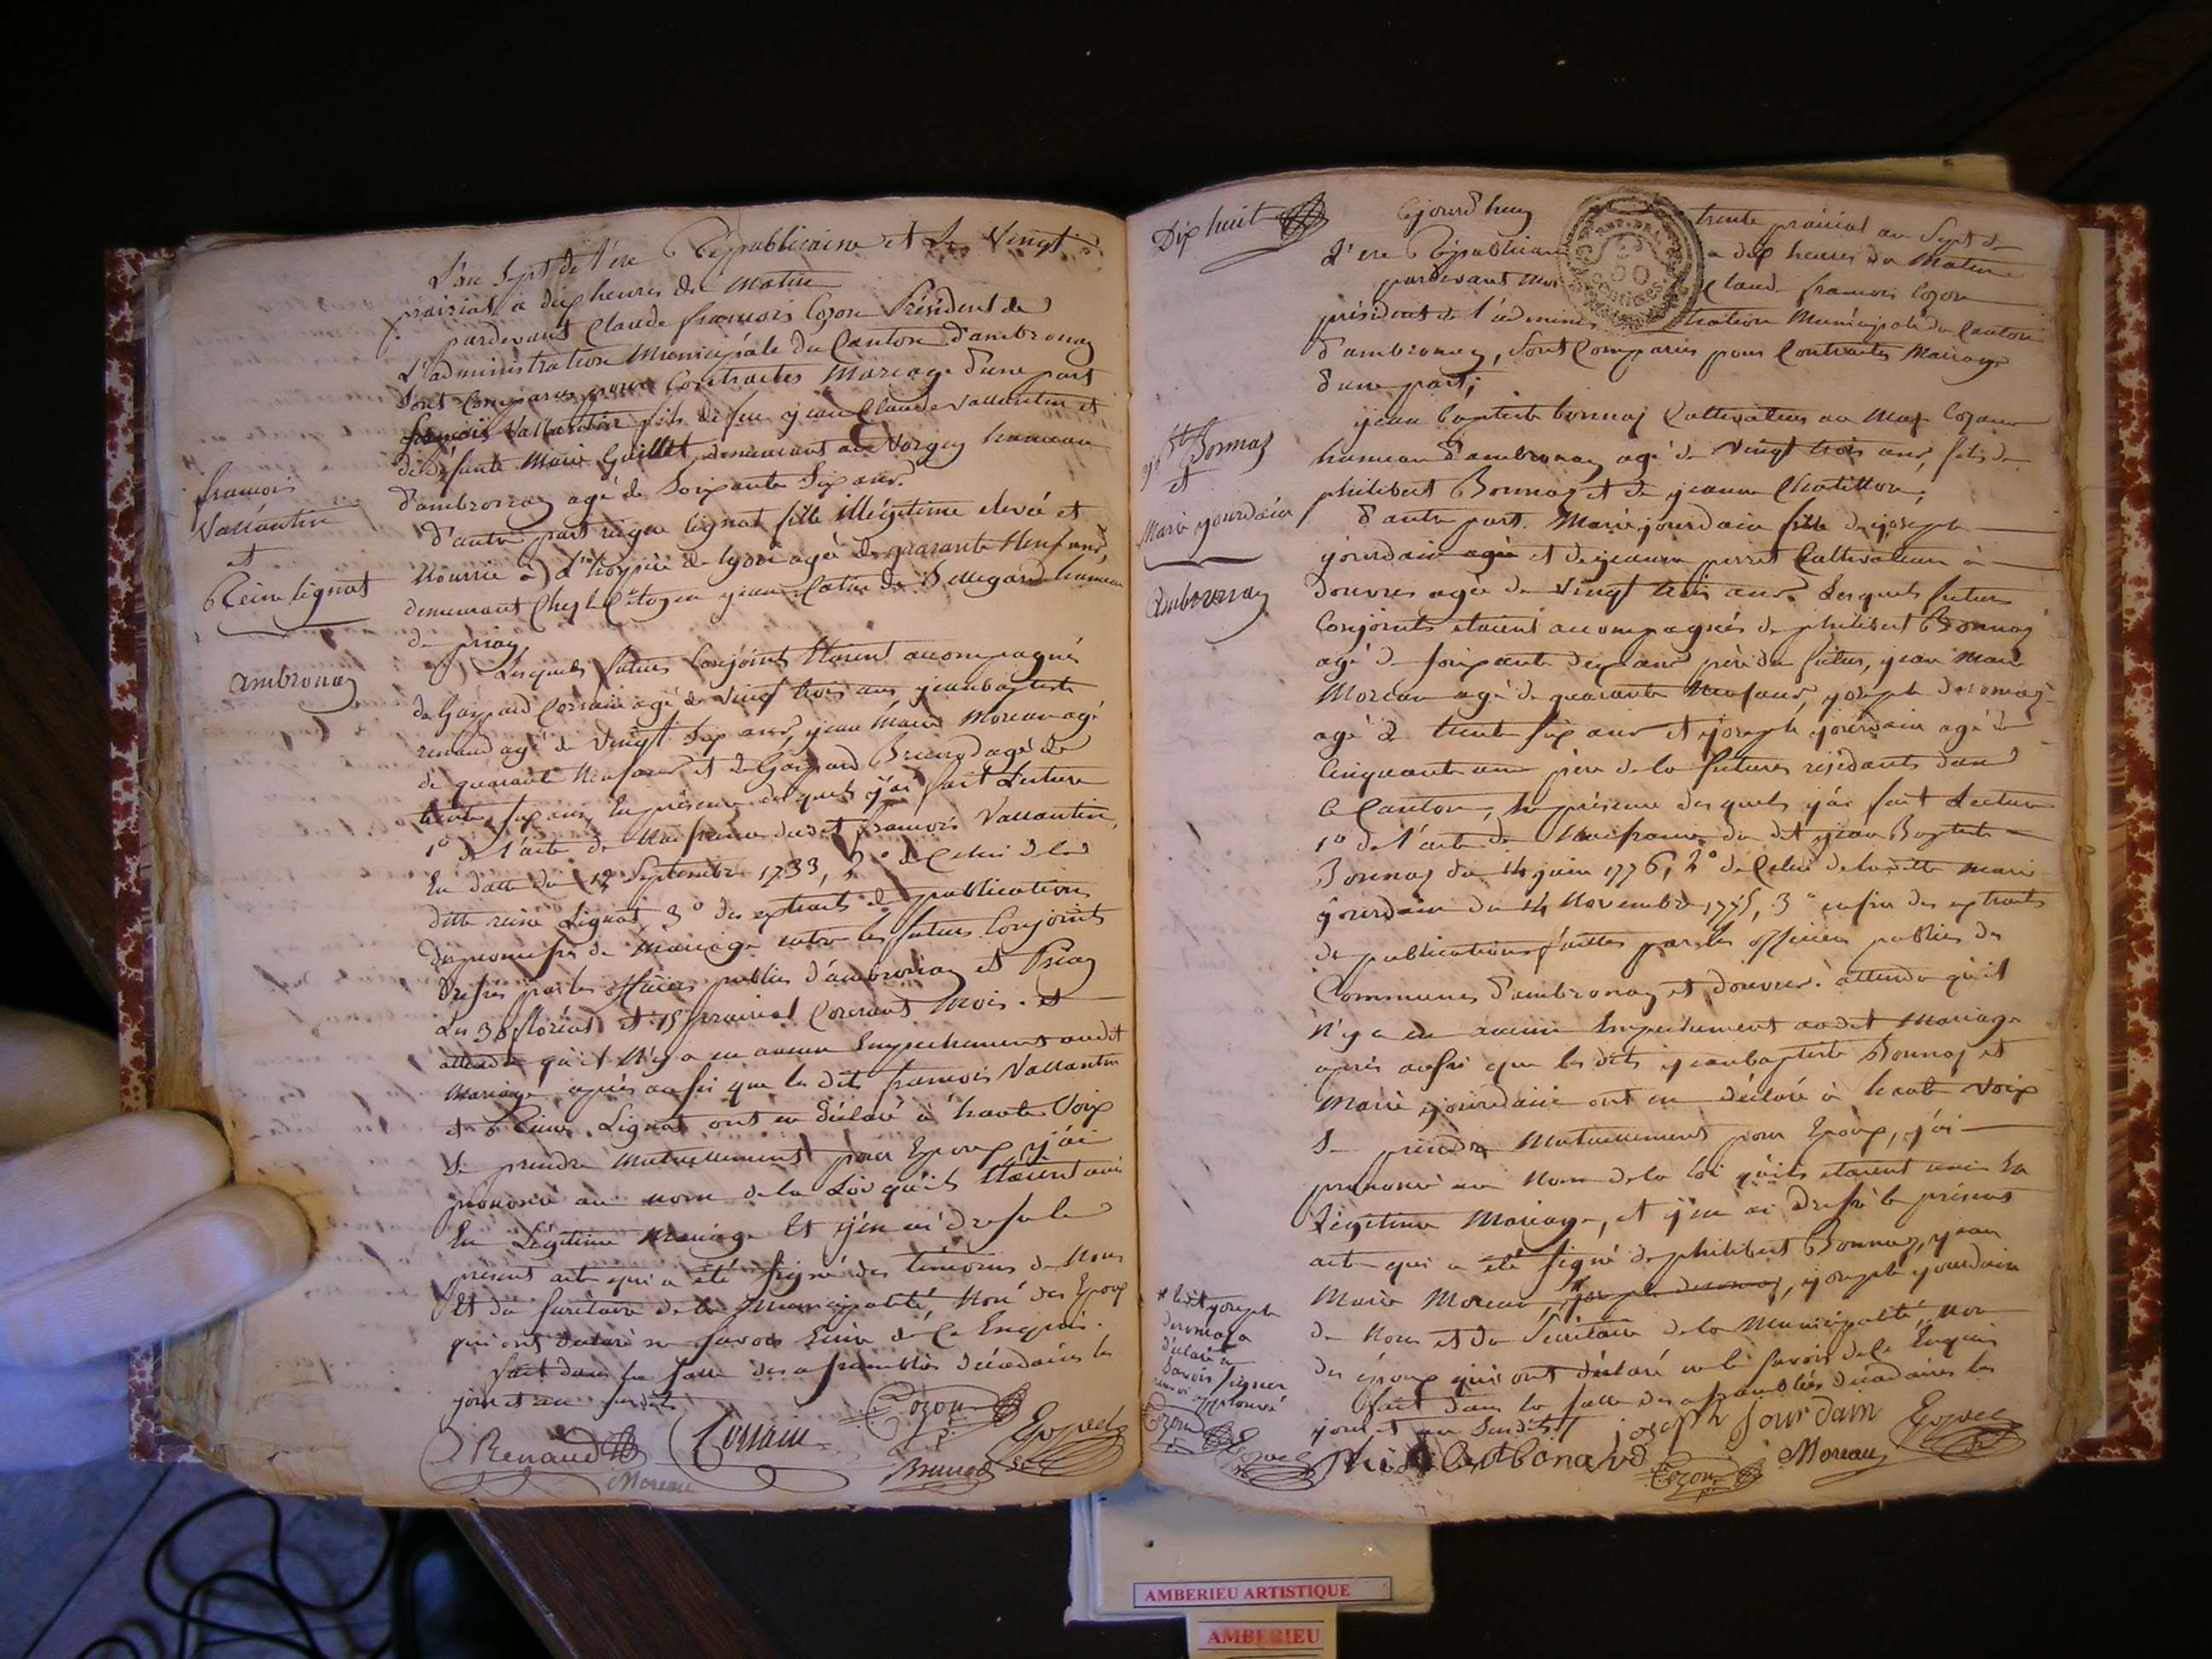 L'an Sept de l'ere Republicaine et Le Vingt
prairial a dix heures du matin
pardevant Claude françois Cozon Président de
L'administration Municipale du Canton d'ambronay
Sont Comparus pour Contracter Mariage d'une part
françois Vallantin fils de feu jean Claude Vallantin et
de défunte Marie Guillet, demeurant au Vorgey hameau
d'ambronay agé de Soixante Six ans.
d'autre part reine Lignat fille illégitime elevée et
Nourrie à l'hospice de Lyon agée de quarante Neuf ans,
demeurant Chez le Citoyen jean de Bellegarde hameau
de priay
Lesquels futurs Conjoints Etaient accompagnés
de Gaspard agé de Vingt trois ans, jeanbaptiste
renaud agé de Vingt Six ans, jean Marie Moreau agé
de quarante Neuf ans et de Gaspard Brunod agé de
trente Six ans, En présence desquels j'ai fait Lecture
1° de l'acte de Naissance dudit françois Vallantin,
En datte du 12 Septembre 1733, 2° de Celui de la
ditte reine Lignat, 3° des extraits de publication
de promesses de Mariage entre les futurs Conjoints
dressés par les officiers publics d'ambronay et Priay
Les 30 floréal et 15 prairial Courant Mois. et
attendu qu'il N'y a eu aucun Empechement audit
Mariage après aussi que les dits françois Vallantin
et Reine Lignat ont eu déclaré à haute Voix
Se prendre Mutuellement pour Epoux, j'ai
prononcé au nom de la Loi qu'ils Etaient unis
En Légitime Mariage Et j'en ai dressé le
présent acte qui a été Signé des témoins de Nous
Et du Sécrétaire de la Municipalité, Non des Epoux
qui ont déclaré ne Savoir Ecrire de Ce Enquis.
fait dans la Salle des assemblées décadaires les
jour et an susdits
françois
Vallantin
et
Reine Lignat
ambronay
Renaud
Cozon
Moreau
Brunod
Dix huit
Cejourd'huy trente prairial an Sept de
L'ere Républicaine a dix heures du Matin
pardevant Moi Claude françois Cozon
président de l'administration Municipale du Canton
d'ambronay, Sont Comparus pour Contracter Mariage
d'une part;
jean baptiste bonnaz Cultivateur au Mas Cozan
hameau d'ambronay agé de Vingt trois ans, fils de
philibert Bonnaz et de jeanne Chatillon;
d'autre part. Marie jourdain fille de joseph
jourdain agée et de jeanne perret Cultivateur à
douvres agée de Vingt trois ans. Lesquels futurs
Conjoints etaient accompagnés de philibert Bonnaz
agé de Soixante dix ans père du futur, jean Marie
Moreau agé de quarante Neuf ans, joseph deromaz
agé de trente Six ans et joseph jourdain agé de
Cinquante ans père de la future résidants dans
Ce Canton, En présence desquels j'ai fait Lecture
1° de l'acte de Naissance du dit jean Baptiste
Bonnaz du 14 juin 1776, 2° de Celui de laditte marie
jourdain du 14 Novembre 1775, 3° enfin des extraits
de publications faittes par les officiers publics des
Communes d'ambronay et douvres. attendu qu'il
N'y a eu aucun Empechement audit Mariage
après aussi que les dits jeanbaptiste Bonnaz et
Marie jourdain ont eu déclaré à haute Voix
Se prendre Mutuellement pour Epoux, j'ai
prononcé au Nom de la Loi qu'ils etaient unis En
Légitime Mariage, et j'en ai dressé le présent
acte qui a été Signé de philibert Bonnaz, jean
Marie Moreau, joseph deromaz, joseph jourdain
de Nous et du Sécrétaire de la Municipalité non
des époux qui ont déclaré ne le Savoir de Ce Enquis
fait dans la Salle des assemblées décadaires les
jour et an Susdits
et
Marie jourdain
Ambronay
* ledit joseph
deromaz a
déclaré ne
Savoir Signer
approuvé
Cozon
joseph Jourdain
Cozon
Moreau
AMBERIEU ARTISTIQUE
AMBERIEU